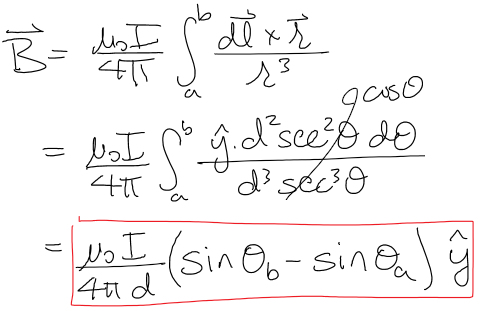 B⃗ = μ₀I/4π ∫ₐᵇ (dl⃗ × r⃗)/r³
= μ₀I/4π ∫ₐᵇ (ŷ.d²sec²θ dθ)/(d³sec³θ) cosθ
= μ₀I/4πd (sinθ_b - sinθₐ) ŷ